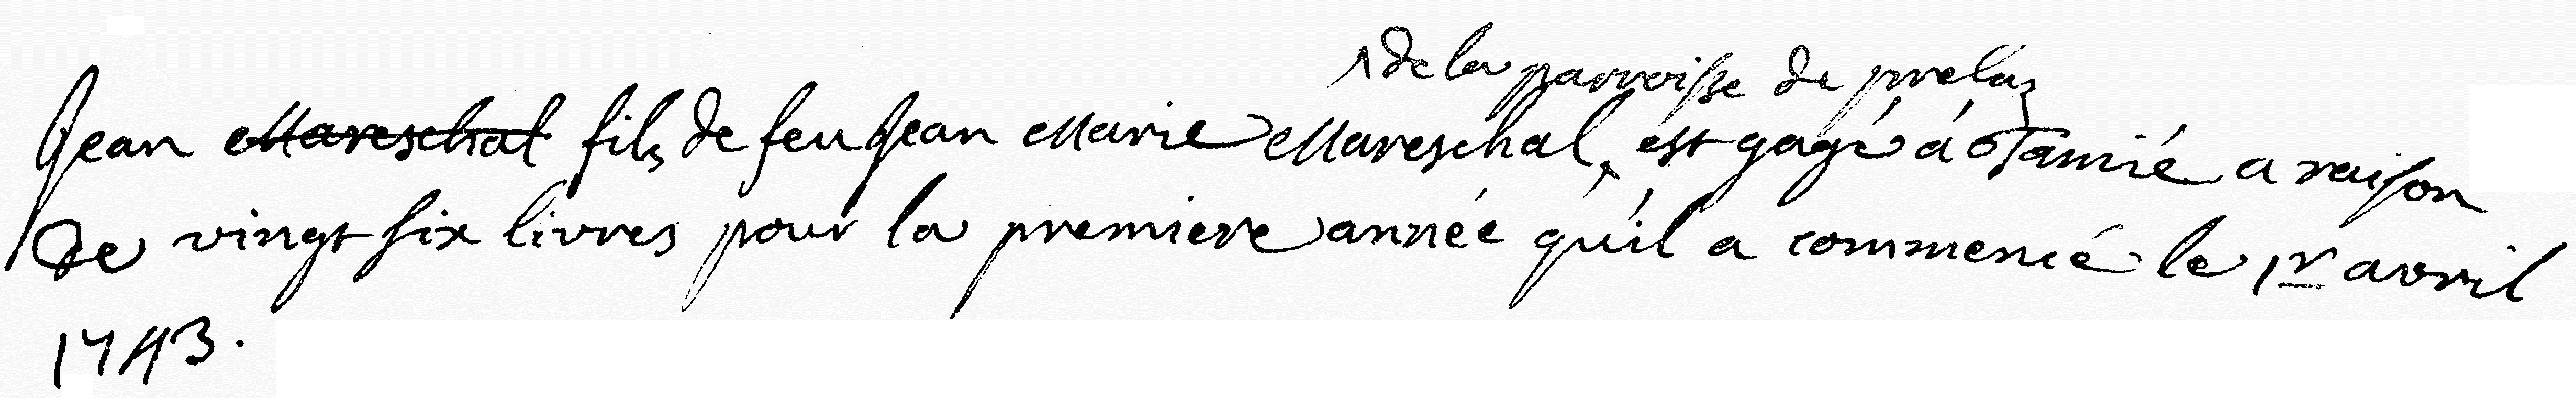 de la parroisse de prelaz
Jean Mareschal fils de feu Jean Marie Mareschal, est gagé á Tamié a raison
de vingt six livres pour la premiere année qu'il a commencé le 1r avril
1743.